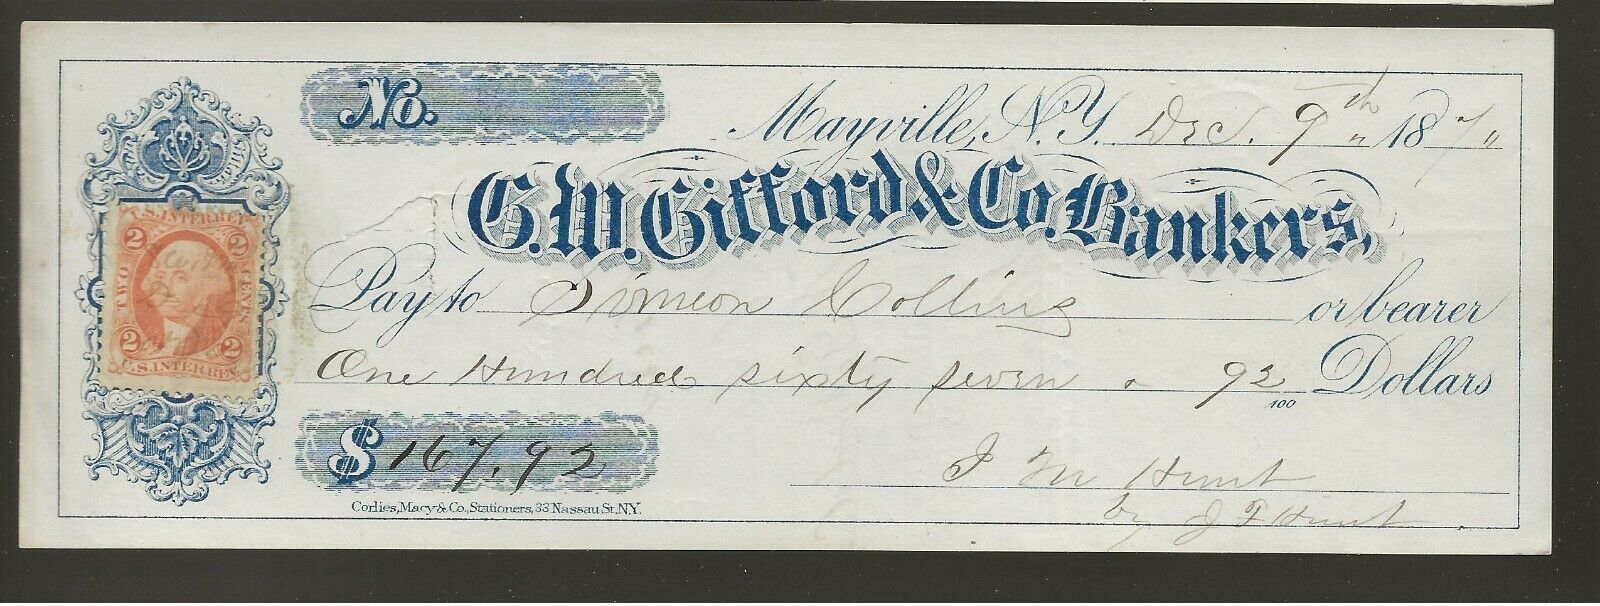 No.
Mayville, N.Y. Dec. 9th 187
G.W. Gifford & Co. Bankers,
Pay to Simeon Collins or bearer
One Hundred sixty seven 92/100 Dollars
$ 167.92
J M Hunt
by J F Hunt
Corlies, Macy & Co., Stationers, 33 Nassau St. N.Y.
STAMP
U.S. INTER. REV.
2 2
TWO CENTS
2 2
U.S. INTER. REV.